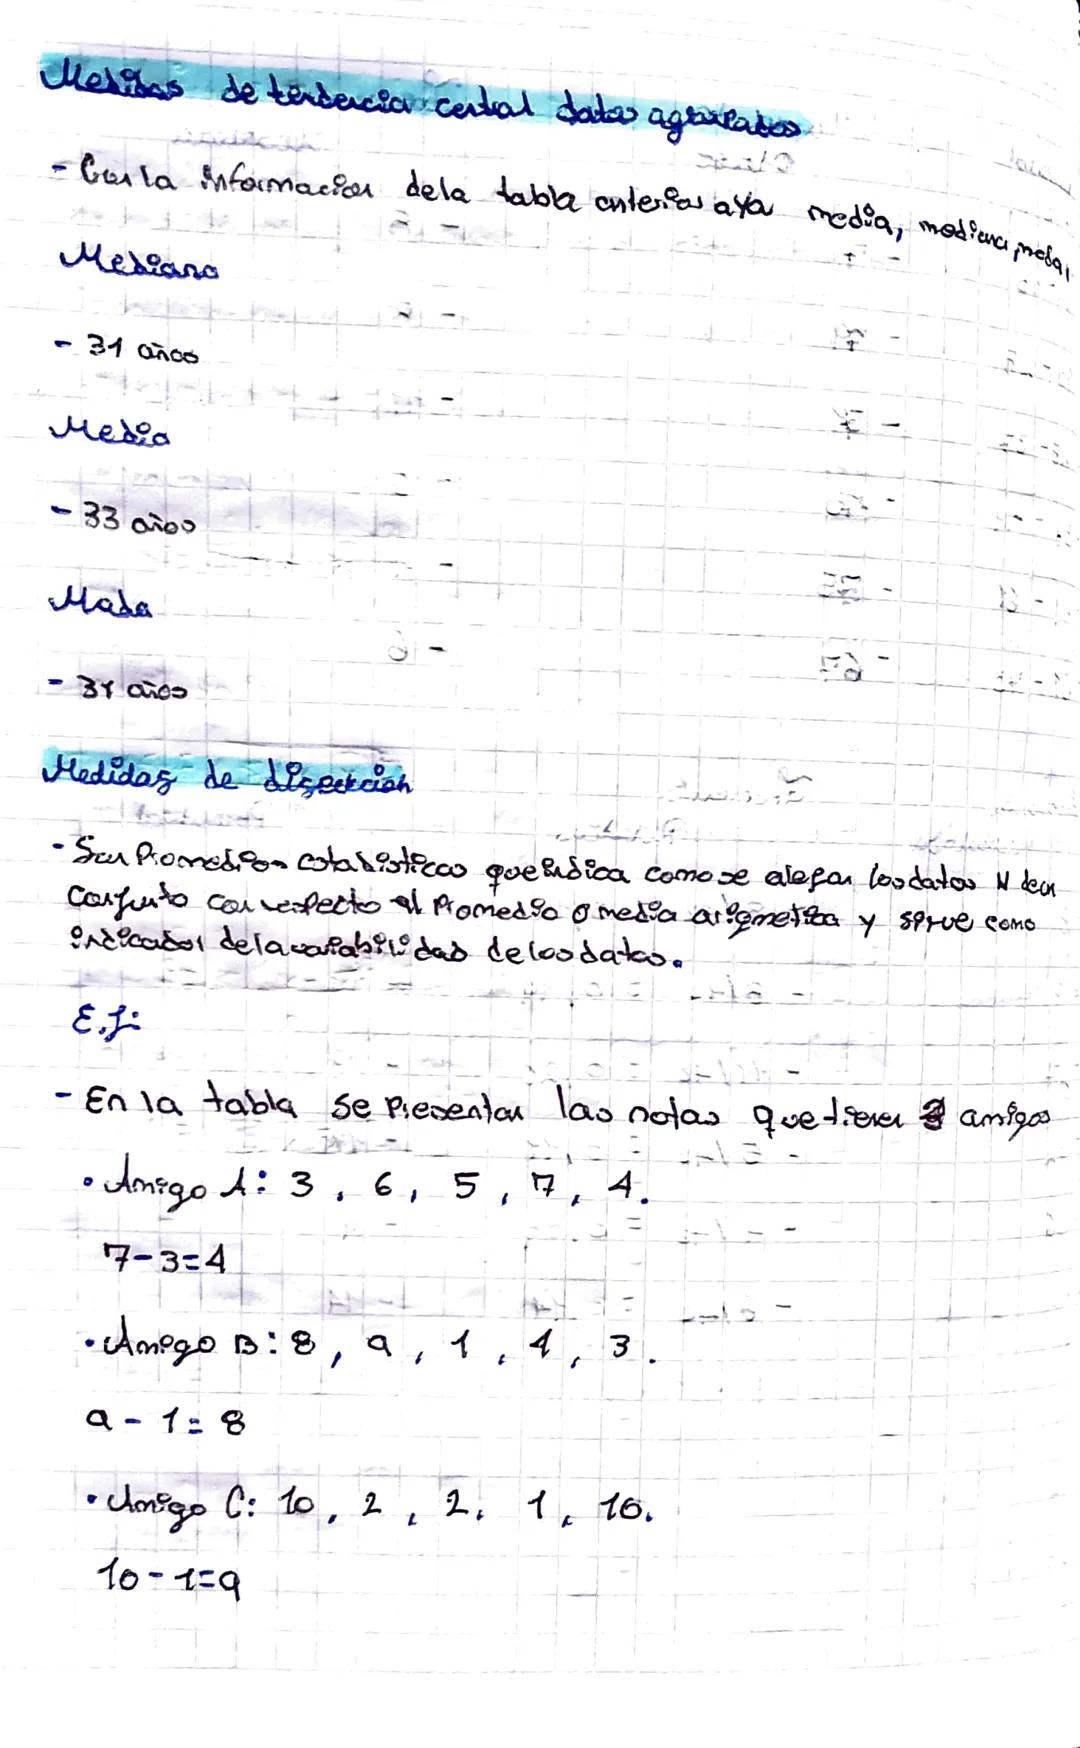 Medidas de tendencia central datos agrupados
- Con la informacion dela tabla anterior aya media, mediana, moda,
Mediana
- 31 años
Media
- 33 años
Moda
- 31 años
Medidas de
- Son Promedios estadisticos que indica como se alejan los datos N de un
Conjunto con respecto al Promedio o media arigmetica y sirve como
indicador dela variabilidad de los datos.
E.j:
- En la tabla se Presentan las notas que tienen 3 amigos
• Amigo A: 3, 6, 5, 7, 4.
7-3=4
• Amigo B: 8, 9, 1, 1, 3.
9 - 1 = 8
• Amigo C: 10, 2, 2, 1, 10.
10-1=9